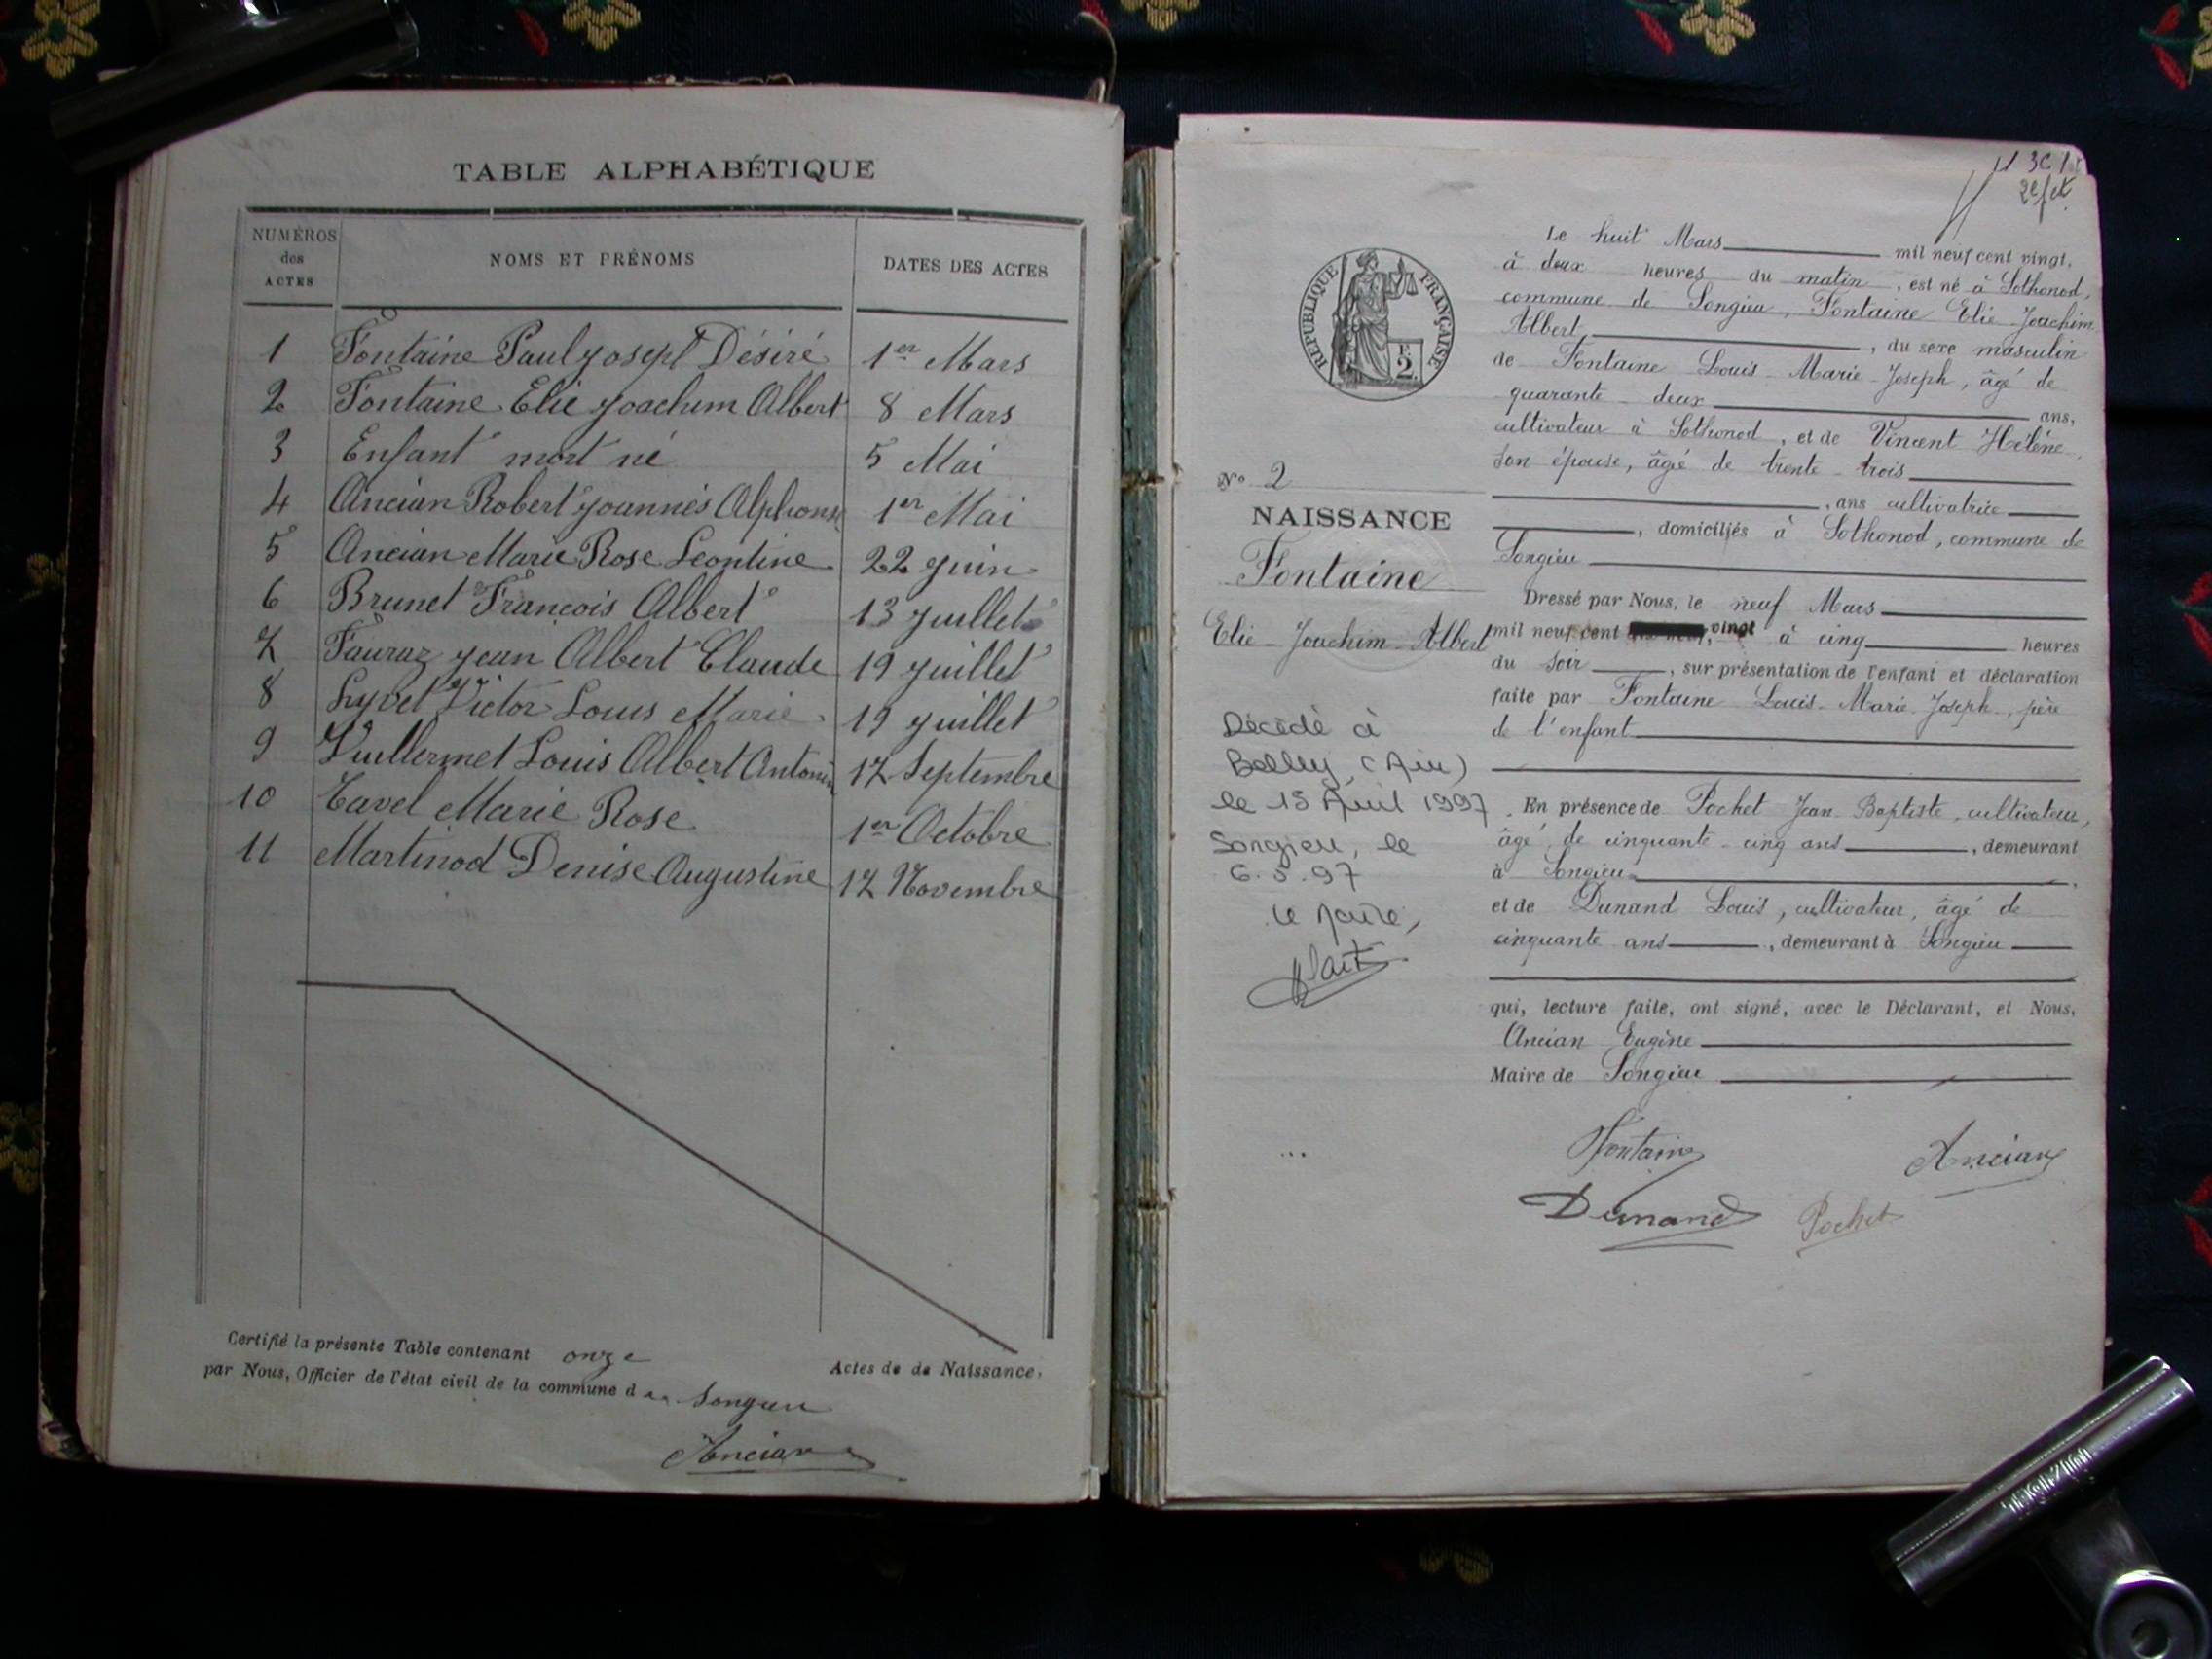 TABLE ALPHABÉTIQUE
NUMÉROS des ACTES NOMS ET PRÉNOMS DATES DES ACTES
1 Fontaine Paul Joseph Désiré 1er Mars
2 Fontaine Elie Joachim Albert 8 Mars
3 Enfant mort né 5 Mai
4 Ancian Robert Joannès Alphonse 1er Mai
5 Ancian Marie Rose Léontine 22 Juin
6 Brunet François Albert 13 Juillet
7 Fauraz Jean Albert Claude 19 Juillet
8 Lyvet Victor Louis Marie 19 Juillet
9 Vuillermet Louis Albert Antonin 17 Septembre
10 Tavel Marie Rose 1er Octobre
11 Martinod Denise Augustine 17 Novembre
Certifié la présente Table contenant onze Actes de de Naissance,
par Nous, Officier de l'état civil de la commune de Songieu
Ancian
RÉPUBLIQUE FRANÇAISE
F. 2.
No 2
NAISSANCE
Fontaine
Elie-Joachim-Albert
Décédé à
Belley (Ain)
le 15 Avril 1997
Songieu, le
6.5.97
le Maire,
Le huit Mars mil neuf cent vingt,
à deux heures du matin, est né à Sothonod,
commune de Songieu, Fontaine Elie-Joachim
Albert, du sexe masculin
de Fontaine Louis-Marie-Joseph, âgé de
quarante-deux ans,
cultivateur à Sothonod, et de Vincent Hélène
son épouse, âgée de trente-trois
, ans cultivatrice
, domiciliés à Sothonod, commune de
Songieu
Dressé par Nous, le neuf Mars
mil neuf cent vingt à cinq heures
du soir, sur présentation de l'enfant et déclaration
faite par Fontaine Louis-Marie-Joseph, père
de l'enfant
En présence de Pochet Jean-Baptiste, cultivateur,
âgé de cinquante-cinq ans, demeurant
à Songieu,
et de Dunand Louis, cultivateur, âgé de
cinquante ans, demeurant à Songieu
qui, lecture faite, ont signé, avec le Déclarant, et Nous,
Ancian Eugène
Maire de Songieu
Fontaine Ancian
Dunand Pochet